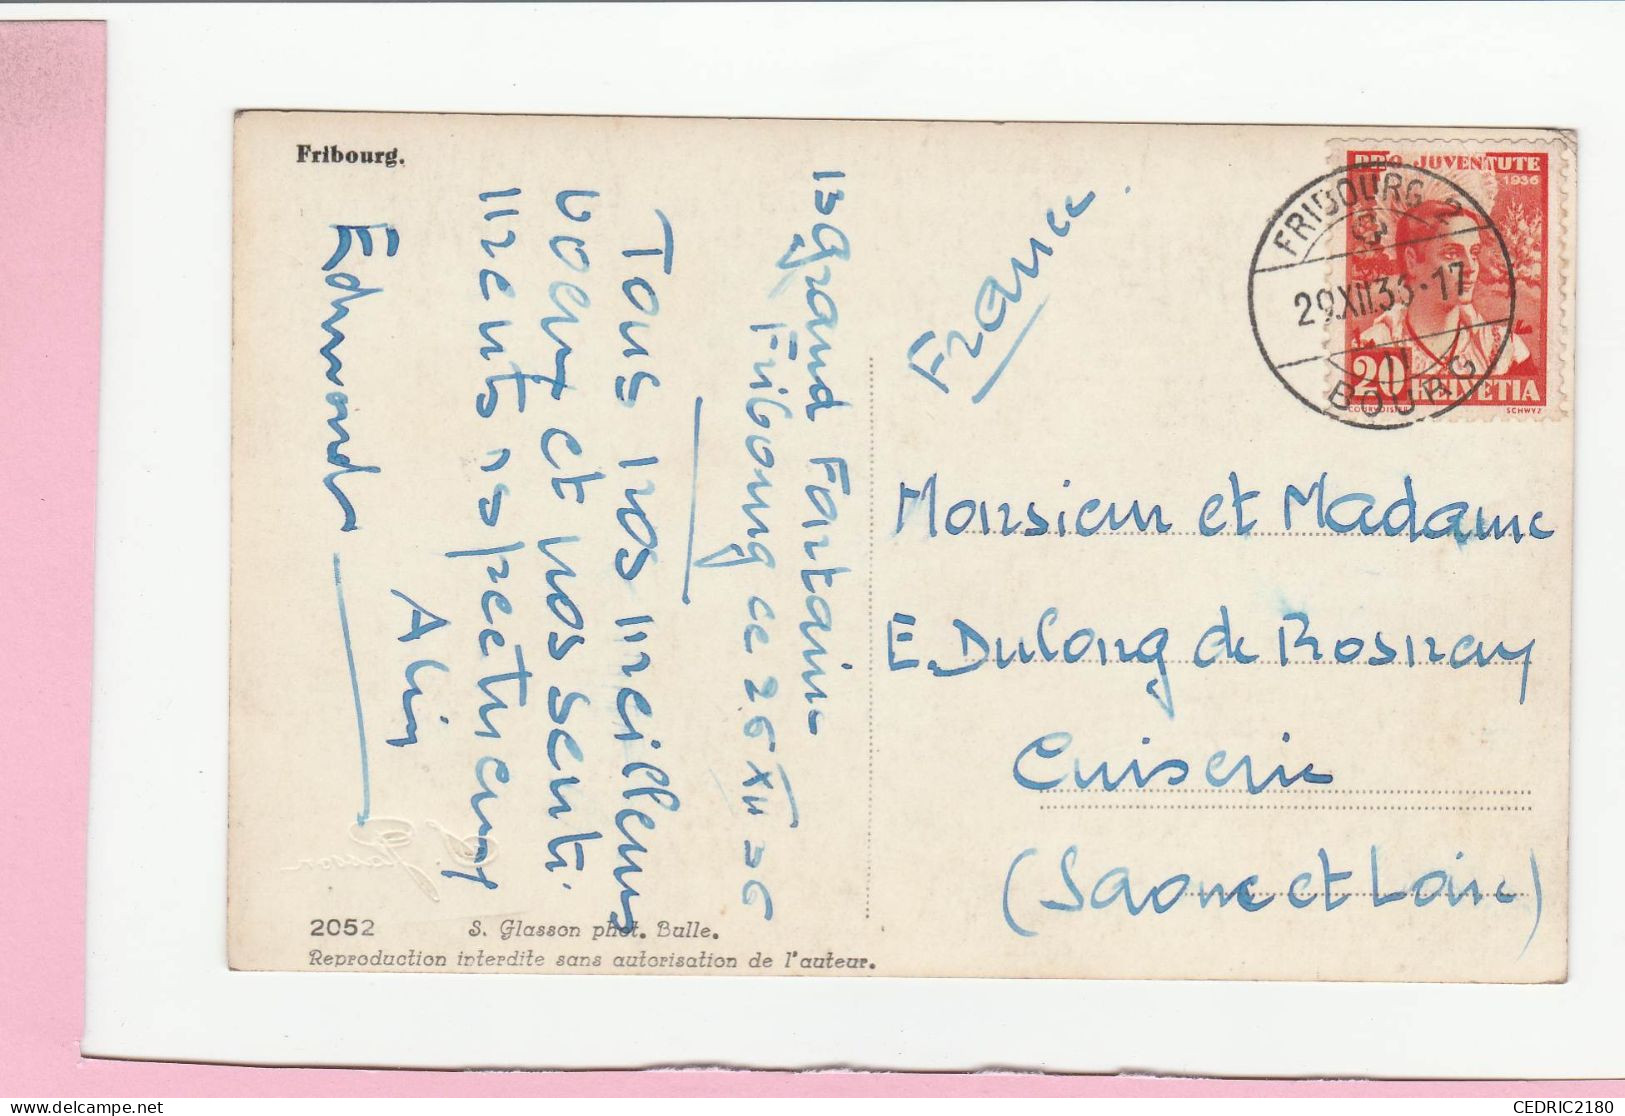 Fribourg.
13 Grand Fontaine
Fribourg ce 26 XII 36
Tous nos meilleurs
voeux et nos senti-
ments respectueux
Edmonde
Alin
2052 S. Glasson phot. Bulle.
Reproduction interdite sans autorisation de l'auteur.
S. Glasson
PRO JUVENTUTE
1936
20
HELVETIA
COURVOISIER SCHWYZ
FRIBOURG 2
29.XII.36-17
BOURG
France
Monsieur et Madame
E. Dulong de Rosnay
Cuiserie
(Saone et Loire)
CEDRIC2180